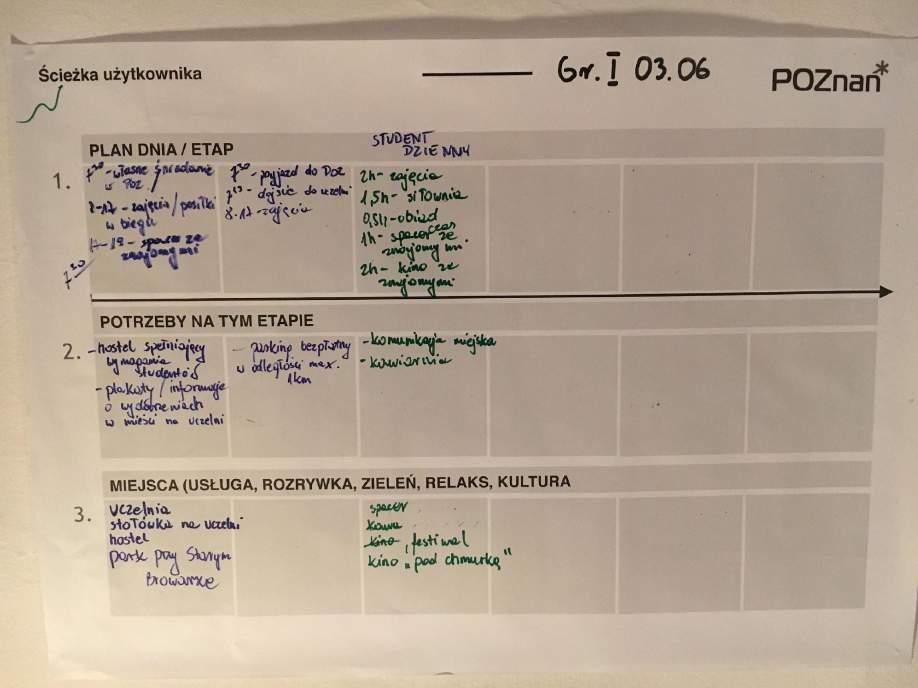 Ścieżka użytkownika
Gr. I 03.06
POZnań*
PLAN DNIA / ETAP
STUDENT
DZIENNY
1.
7³⁰ - własne śniadanie
w Poz.
8-17 - zajęcia / posiłki
w biegu
17-19 - spacer ze
znajomymi
7³⁰
7³⁰ - przyjazd do Poz
7⁴⁵ - dojście do uczelni
8-17 - zajęcia
2h - zajęcia
1,5h - siłownia
0,5h - obiad
1h - spacer czas ze
znajomymi.
2h - kino ze
znajomymi
POTRZEBY NA TYM ETAPIE
2.
- hostel spełniający
wymagania
studentów
- plakaty / informacje
o wydarzeniach
w mieści na uczelni
- parking bezpłatny
w odległości max.
1km
- komunikacja miejska
- kawiarnia
MIEJSCA (USŁUGA, ROZRYWKA, ZIELEŃ, RELAKS, KULTURA
3.
uczelnia
stołówka na uczelni
hostel
park przy Starym
Browarze
spacer
kawa
kino, festiwal
kino „pod chmurką"